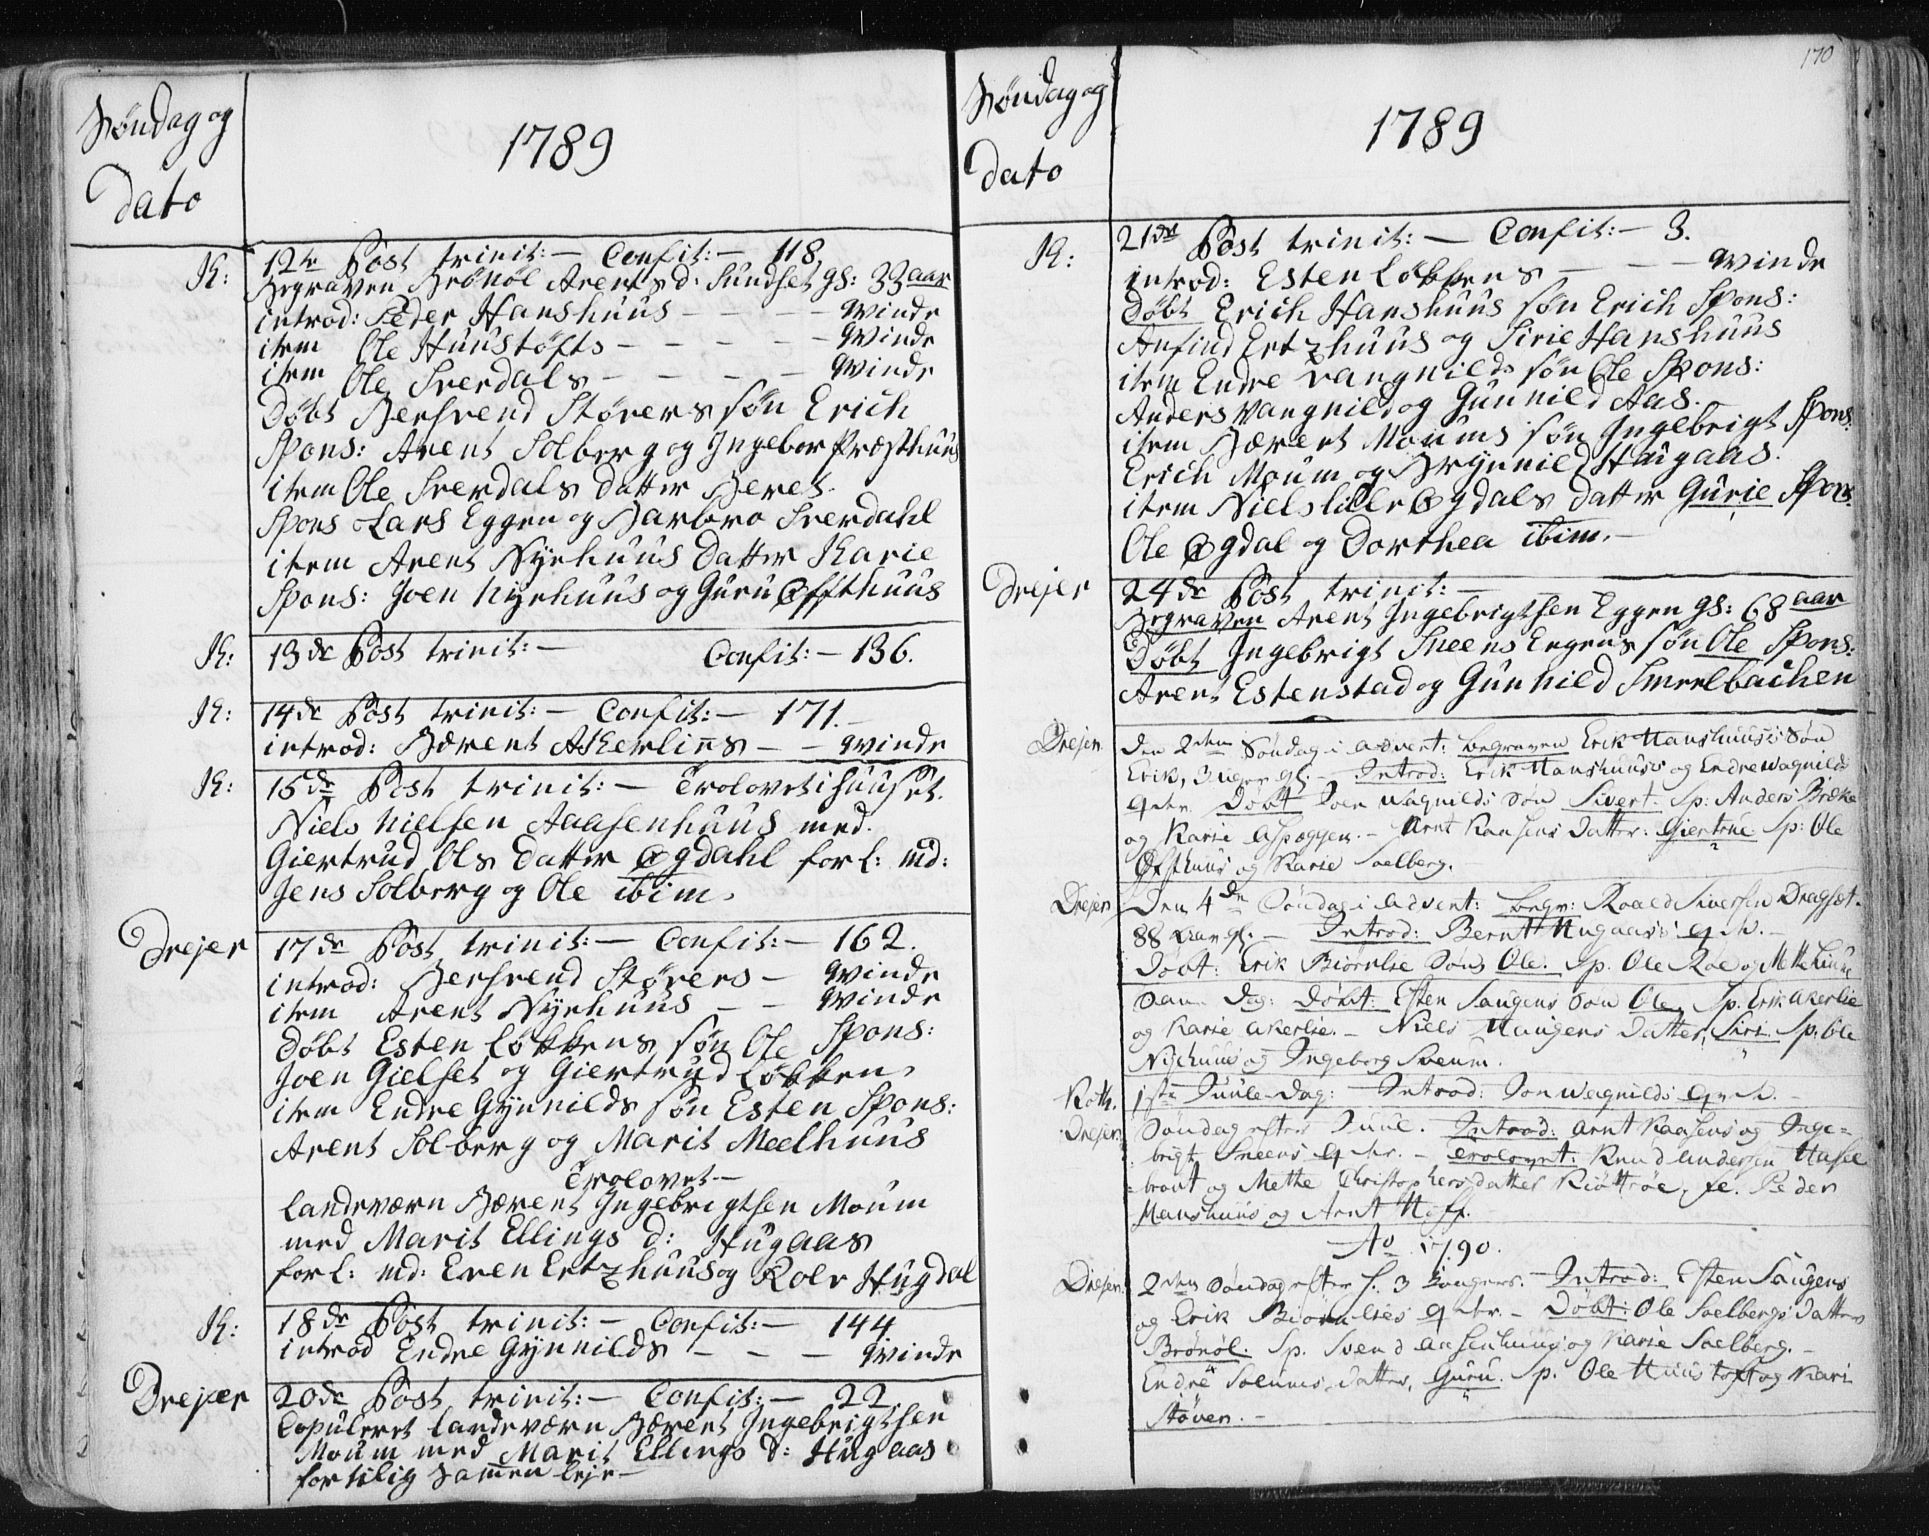 Søndag og
Dato
1789
K:
12te Post trinit: — Confit: — 118.
Begraven Brönöl Arents d: Sundset gs: 33 aar
introd: Peder Hanshuus — — — — Qvinde
item Ole Huustöfts — — — — — Qvinde
item Ole Sverdals — — — — Qvinde
Döbt Berhrend Störers søn Erich
Spons: Arent Solberg og Ingebor Præsthuus
item Ole Sverdals datter Beret.
Spons Lars Eggen og Barbro Sverdahl
item Arent Nyehuus Datter Karie
Spons: Joen Nyehuus og Guru Øffthuus
K:
13de Post trinit: — Confit: — 136.
K:
14de Post trinit: — Confit: — 171. —
introd: Bærent Akerliens — — Qvinde
K:
15de Post trinit: — Trolovet i huuset.
Niels Nielsen Aasenhuus med.
Giertrud Ols Datter Øgdahl forl: md:
Jens Solberg og Ole ibim.
Drejer
17de Post trinit: — Confit: — 162.
introd: Berhrend Störers — Qvinde
item Arent Nyehuus — — Qvinde
Döbt Esten Løkkens søn Ole Spons:
Joen Gielset og Giertrud Løkken,
item Endre Gynnilds søn Esten Spons:
Arent Solberg og Marit Meelhuus
Trolovet —
Landeværn Bærent Ingebrigtsen Moum
med Marit Ellings D: Hugaas
forl: md: Even Ertzhuus og Rolv Hugdal
K:
18de Post trinit: — Confit: — 144
introd Endre Gynnilds — — — Qvinde
Drejer
20de Post trinit: — Confit: — 22
Copuleret Landeværn Bærent Ingebrigtsen
Moum med Marit Ellings D: Hugaas
for tilig Samen leje —
170
Søndag og
Dato
1789
K:
21de Post trinit: — Confit: — 3.
introd: Esten Løkkens — — — Qvinde
Döbt Erich Hanshuus søn Erich Spons:
Anfind Ertzhuus og Sirie Hanshuus
item Endre Vangnilds søn Ole Spons:
Anders Vangnild og Gunnild Aas.
item Bærent Moums søn Ingebrigt Spons.
Erich Moum og Brynnild Haugaas.
item Niels lille Øgdals Datter Gurie Spons.
Ole Øgdal og Dorthea ibim. —
Drejer
24de Post trinit: —
Begraven Arent Ingebrigtsen Eggen gs: 68 aar
Döbt Ingebrigt Sneens Engens søn Ole Spons:
Arent Estenstad og Gunhild Smeelbachen
Drejer.
Den 2den Söndag i Advent: begraven Erik Hanshuus's Sön
Erik, 3 uger gl. — Introd: Erik Hanshuus's og Endre Wagnilds
Qvr. Döbt Joen Wagnilds Sön Sivert. Sp: Anders Bræke
og Karie Aspeggen. — Arnt Kaasens Datter: Giertrue Sp: Ole
Øfsthuus og Karie Soelberg.
Drejer
Den 4de Söndag i Advent: begr: Roald Siversen Dragset.
88 Aar gl. — Introd: Bernt Hugaas's Qv. —
Döbt: Erik Biörnlie Söns Ole. Sp. Ole Roe og Mette Liune
Sam. Dag: Döbt: Esten Saugens Sön Ole. Sp. Erik Akerlie
og Karie Akerlie. — Niels Haugens Datter, Siri. Sp: Ole
Nyehuus og Ingeborg Svenm.
Roth.
1ste Juule-Dag: Introd: Jon Wagnilds Qv. —
Drejer
Söndag efter Juul. Introd: Arnt Kaasens og Inge=
brigt Sneens Qvr. — trolovet: Knud Andersen Hasse
=brant og Mette Christophersdatter Kiöttröe, fe. Peder
Hanshuus og Arnt Hoff.
Ao 1790.
Drejer.
2den Söndag efter H. 3 Konger. — Introd: Esten Saugens
og Erik Biörnlies Qvr. — Döbt: Ole Soelbergs Datter
Brönöl. Sp. Svend Aasenhuus og Karie Soelberg. —
Endre Solums Datter, Guru. Sp. Ole Huustoft og Kari
Stöven. —